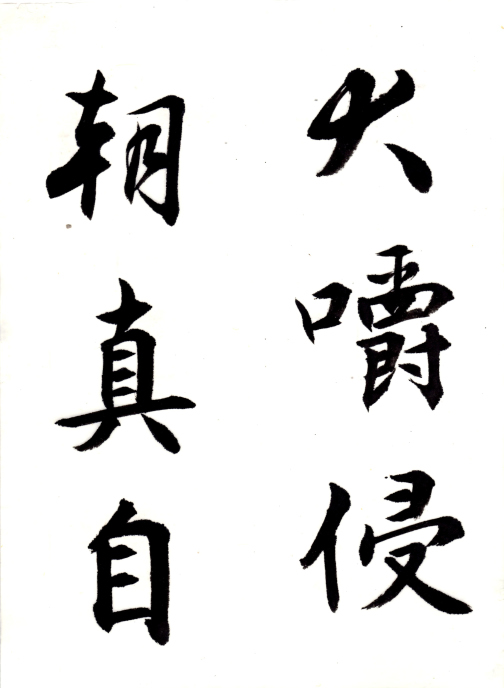 大嚼侵
朝真自